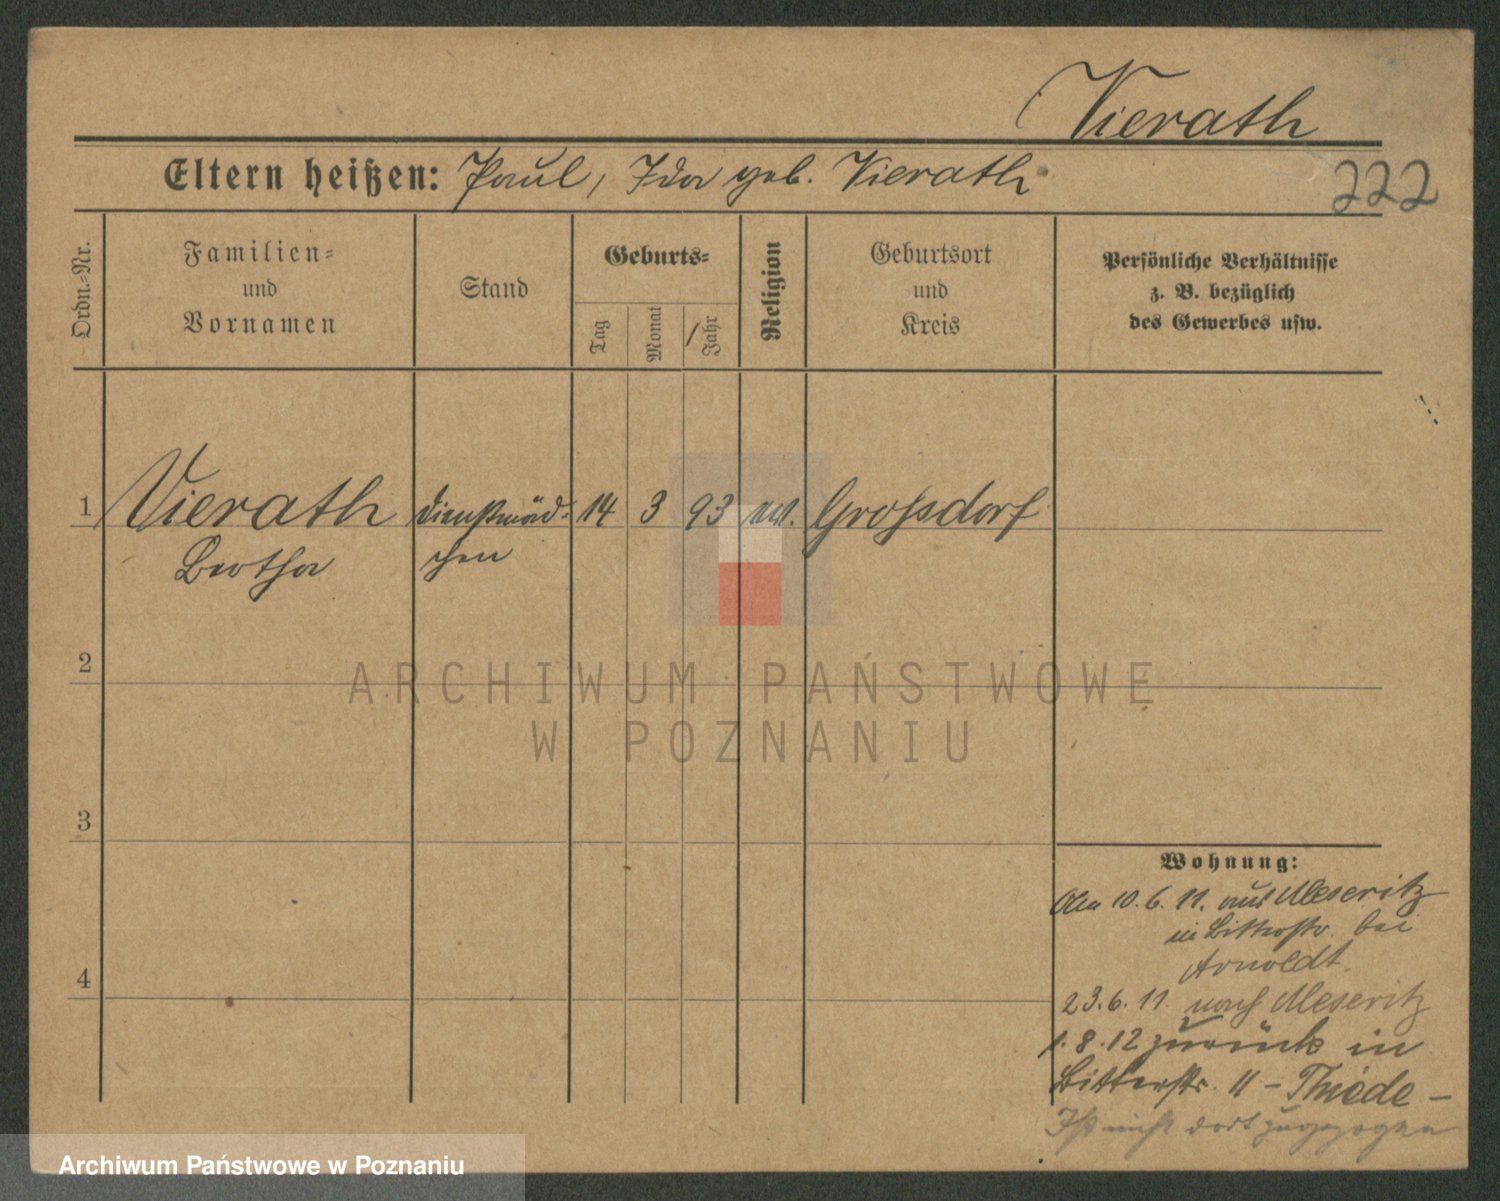 Vierath
Eltern heißen: Paul, Ida geb. Vierath
222
Ordn.-Nr.
Familien-
und
Vornamen
Stand
Geburts-
Tag
Monat
Jahr
Religion
Geburtsort
und
Kreis
Persönliche Verhältnisse
z. B. bezüglich
des Gewerbes usw.
1 Vierath Dienstmäd- 14 3 93 ev. Grossdorf
Bertha chen
2
3
4
Wohnung:
Am 10.6.11. aus Meseritz
in Bitterstr. bei
Arnoldt.
23.6.11. nach Meseritz
1.8.12 zurück in
Bitterstr. 11 – Thiede –
Ist nicht dort zugezogen
ARCHIWUM PAŃSTWOWE
W POZNANIU
Archiwum Państwowe w Poznaniu